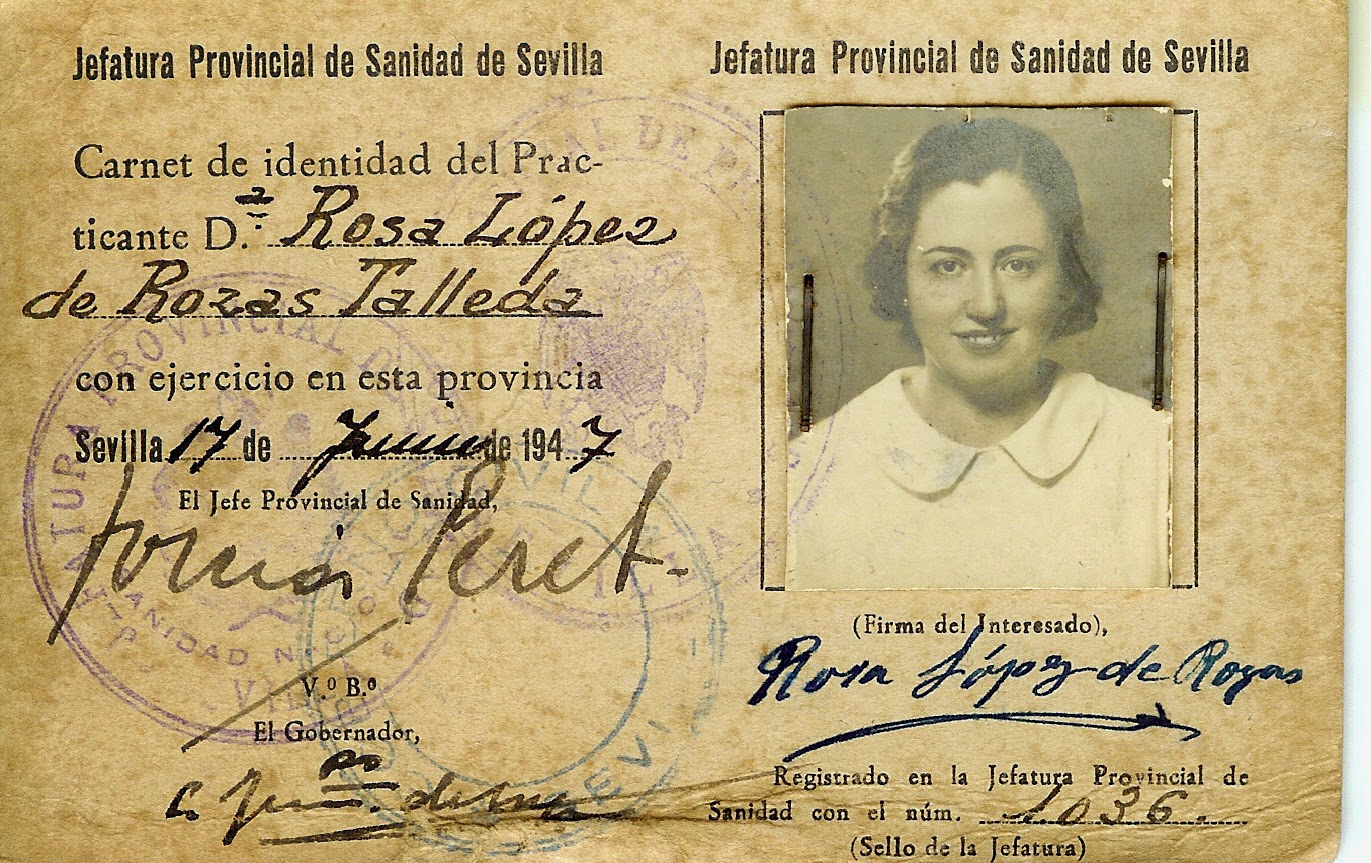 Jefatura Provincial de Sanidad de Sevilla
Carnet de identidad del Prac-
ticante D.ª Rosa López
de Rozas Talleda
con ejercicio en esta provincia
Sevilla 17 de Junio de 1947
El Jefe Provincial de Sanidad,
V.º B.º
El Gobernador,
JEFATURA PROVINCIAL DE
SANIDAD
SEVILLA
Jefatura Provincial de Sanidad de Sevilla
(Firma del Interesado),
Rosa López de Rozas
Registrado en la Jefatura Provincial de
Sanidad con el núm. 1036.
(Sello de la Jefatura)